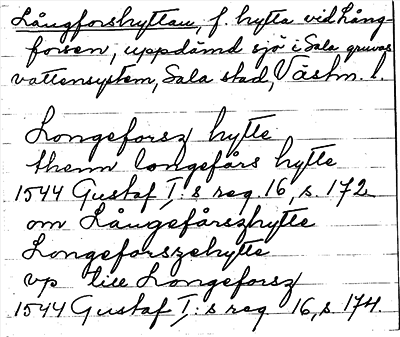 Långforshyttan, f. hytta vid Lång-
forsen, uppdämd sjö i Sala gruvas
vattensystem, Sala stad, Västm. l.
Longeforsz hytte
thenn longefårs hytte
1544 Gustaf I:s reg 16, s. 172
om Långefårszhytte
Longeforszehytte
vp till Longeforsz
1544 Gustaf I:s reg 16, s. 174.